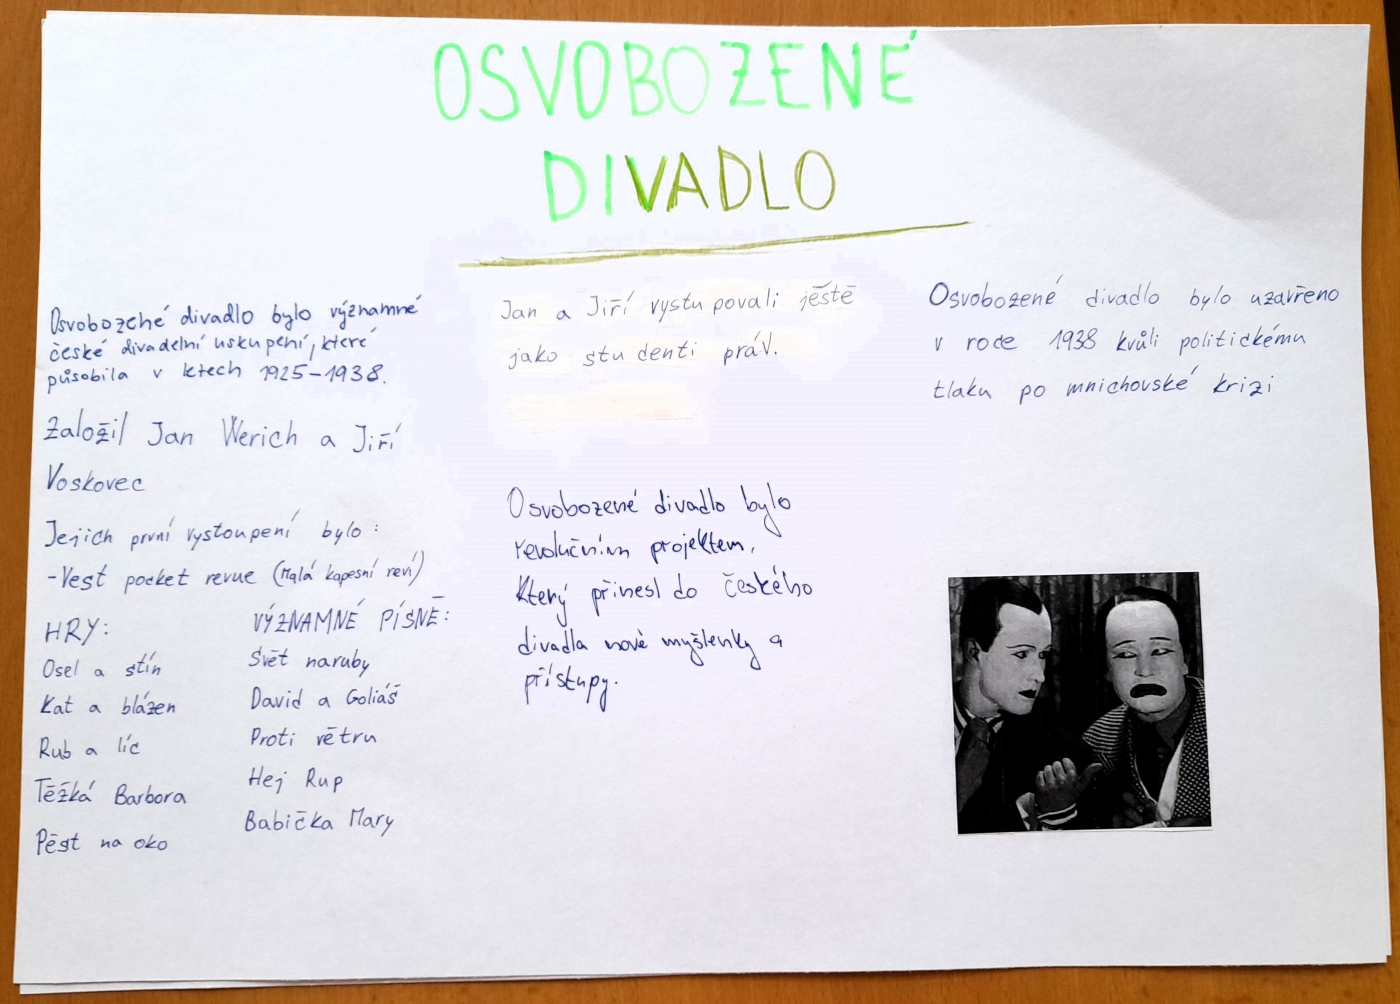 OSVOBOZENÉ
DIVADLO
Osvobozené divadlo bylo významné
české divadelní uskupení, které
působila v letech 1925-1938.
Založil Jan Werich a Jiří
Voskovec
Jejich první vystoupení bylo:
-Vest pocket revue (Malá kapesní reví)
HRY:
Osel a stín
Kat a blázen
Rub a líc
Těžká Barbora
Pěst na oko
VÝZNAMNÉ PÍSNĚ:
Svět naruby
David a Goliáš
Proti větru
Hej Rup
Babička Mary
Jan a Jiří vystupovali ještě
jako studenti práv.
Osvobozené divadlo bylo
revolučním projektem,
který přinesl do českého
divadla nové myšlenky a
přístupy.
Osvobozené divadlo bylo uzavřeno
v roce 1938 kvůli politickému
tlaku po mnichovské krizi